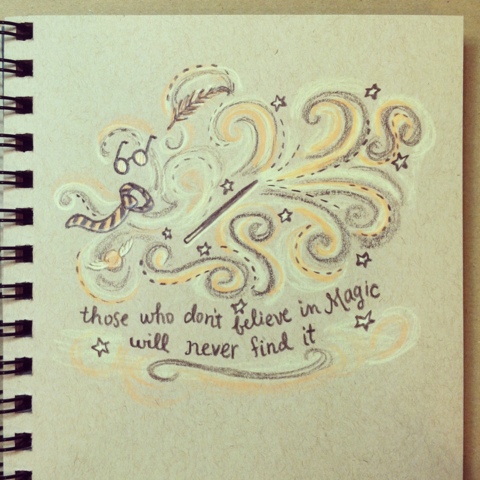 those who don't believe in Magic
will never find it